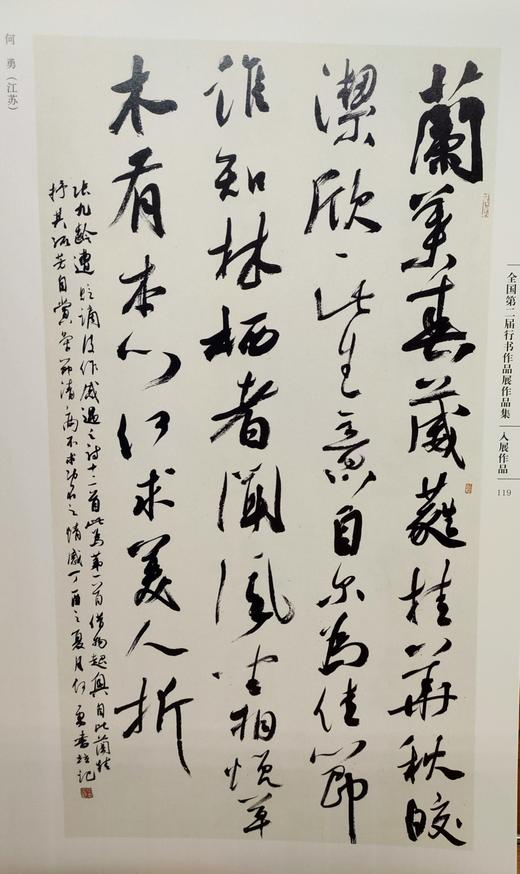 全国第二届行书作品展作品集 入展作品
119
蘭葉春葳蕤桂華秋皎
潔欣、此生意自尔為佳節
誰知林栖者聞風坐相悦草
木有本心何求美人折
张九龄遭贬谪后作感遇之诗十二首此為第一首借物起興自比蘭桂
抒其孤芳自賞氣節清高不求功名之情感丁酉之夏月何勇書并记
何 勇（江苏）